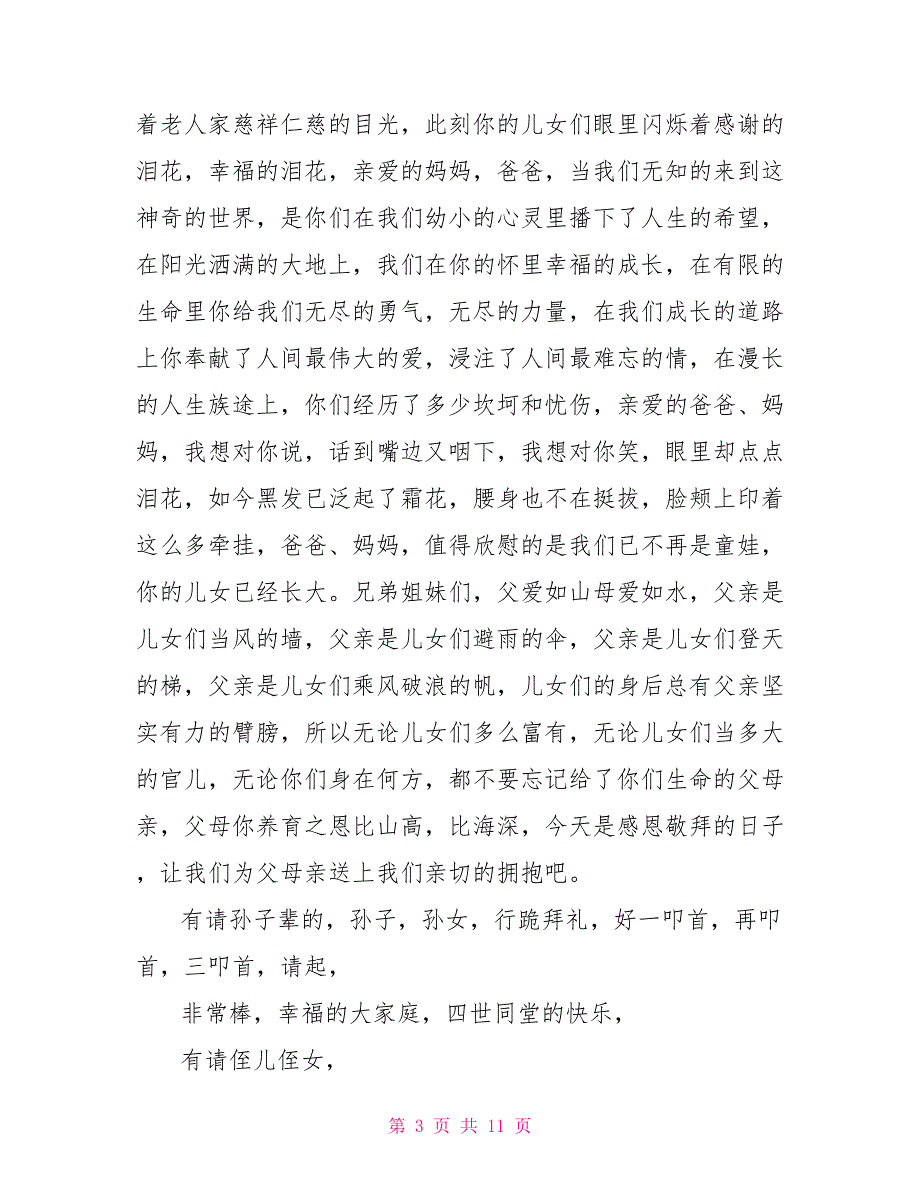 着老人家慈祥仁慈的目光，此刻你的儿女们眼里闪烁着感谢的
泪花，幸福的泪花，亲爱的妈妈，爸爸，当我们无知的来到这
神奇的世界，是你们在我们幼小的心灵里播下了人生的希望，
在阳光洒满的大地上，我们在你的怀里幸福的成长，在有限的
生命里你给我们无尽的勇气，无尽的力量，在我们成长的道路
上你奉献了人间最伟大的爱，浸注了人间最难忘的情，在漫长
的人生族途上，你们经历了多少坎坷和忧伤，亲爱的爸爸、妈
妈，我想对你说，话到嘴边又咽下，我想对你笑，眼里却点点
泪花，如今黑发已泛起了霜花，腰身也不在挺拔，脸颊上印着
这么多牵挂，爸爸、妈妈，值得欣慰的是我们已不再是童娃，
你的儿女已经长大。兄弟姐妹们，父爱如山母爱如水，父亲是
儿女们当风的墙，父亲是儿女们避雨的伞，父亲是儿女们登天
的梯，父亲是儿女们乘风破浪的帆，儿女们的身后总有父亲坚
实有力的臂膀，所以无论儿女们多么富有，无论儿女们当多大
的官儿，无论你们身在何方，都不要忘记给了你们生命的父母
亲，父母你养育之恩比山高，比海深，今天是感恩敬拜的日子
，让我们为父母亲送上我们亲切的拥抱吧。
有请孙子辈的，孙子，孙女，行跪拜礼，好一叩首，再叩
首，三叩首，请起，
非常棒，幸福的大家庭，四世同堂的快乐，
有请侄儿侄女，
第 3 页 共 11 页